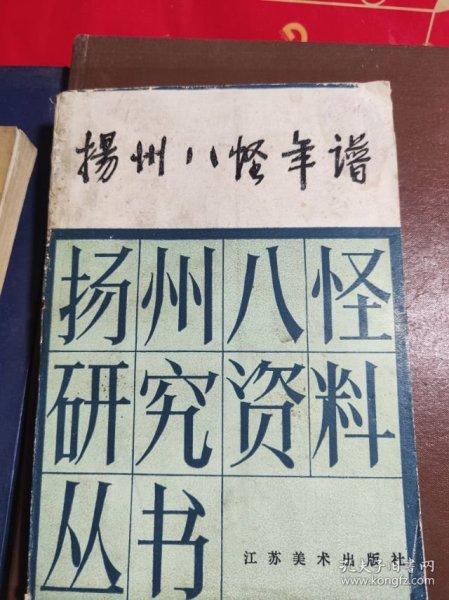 揚州八怪年譜
扬州八怪
研究资料
丛书
江苏美术出版社
孔夫子旧书网
www.kongfz.com